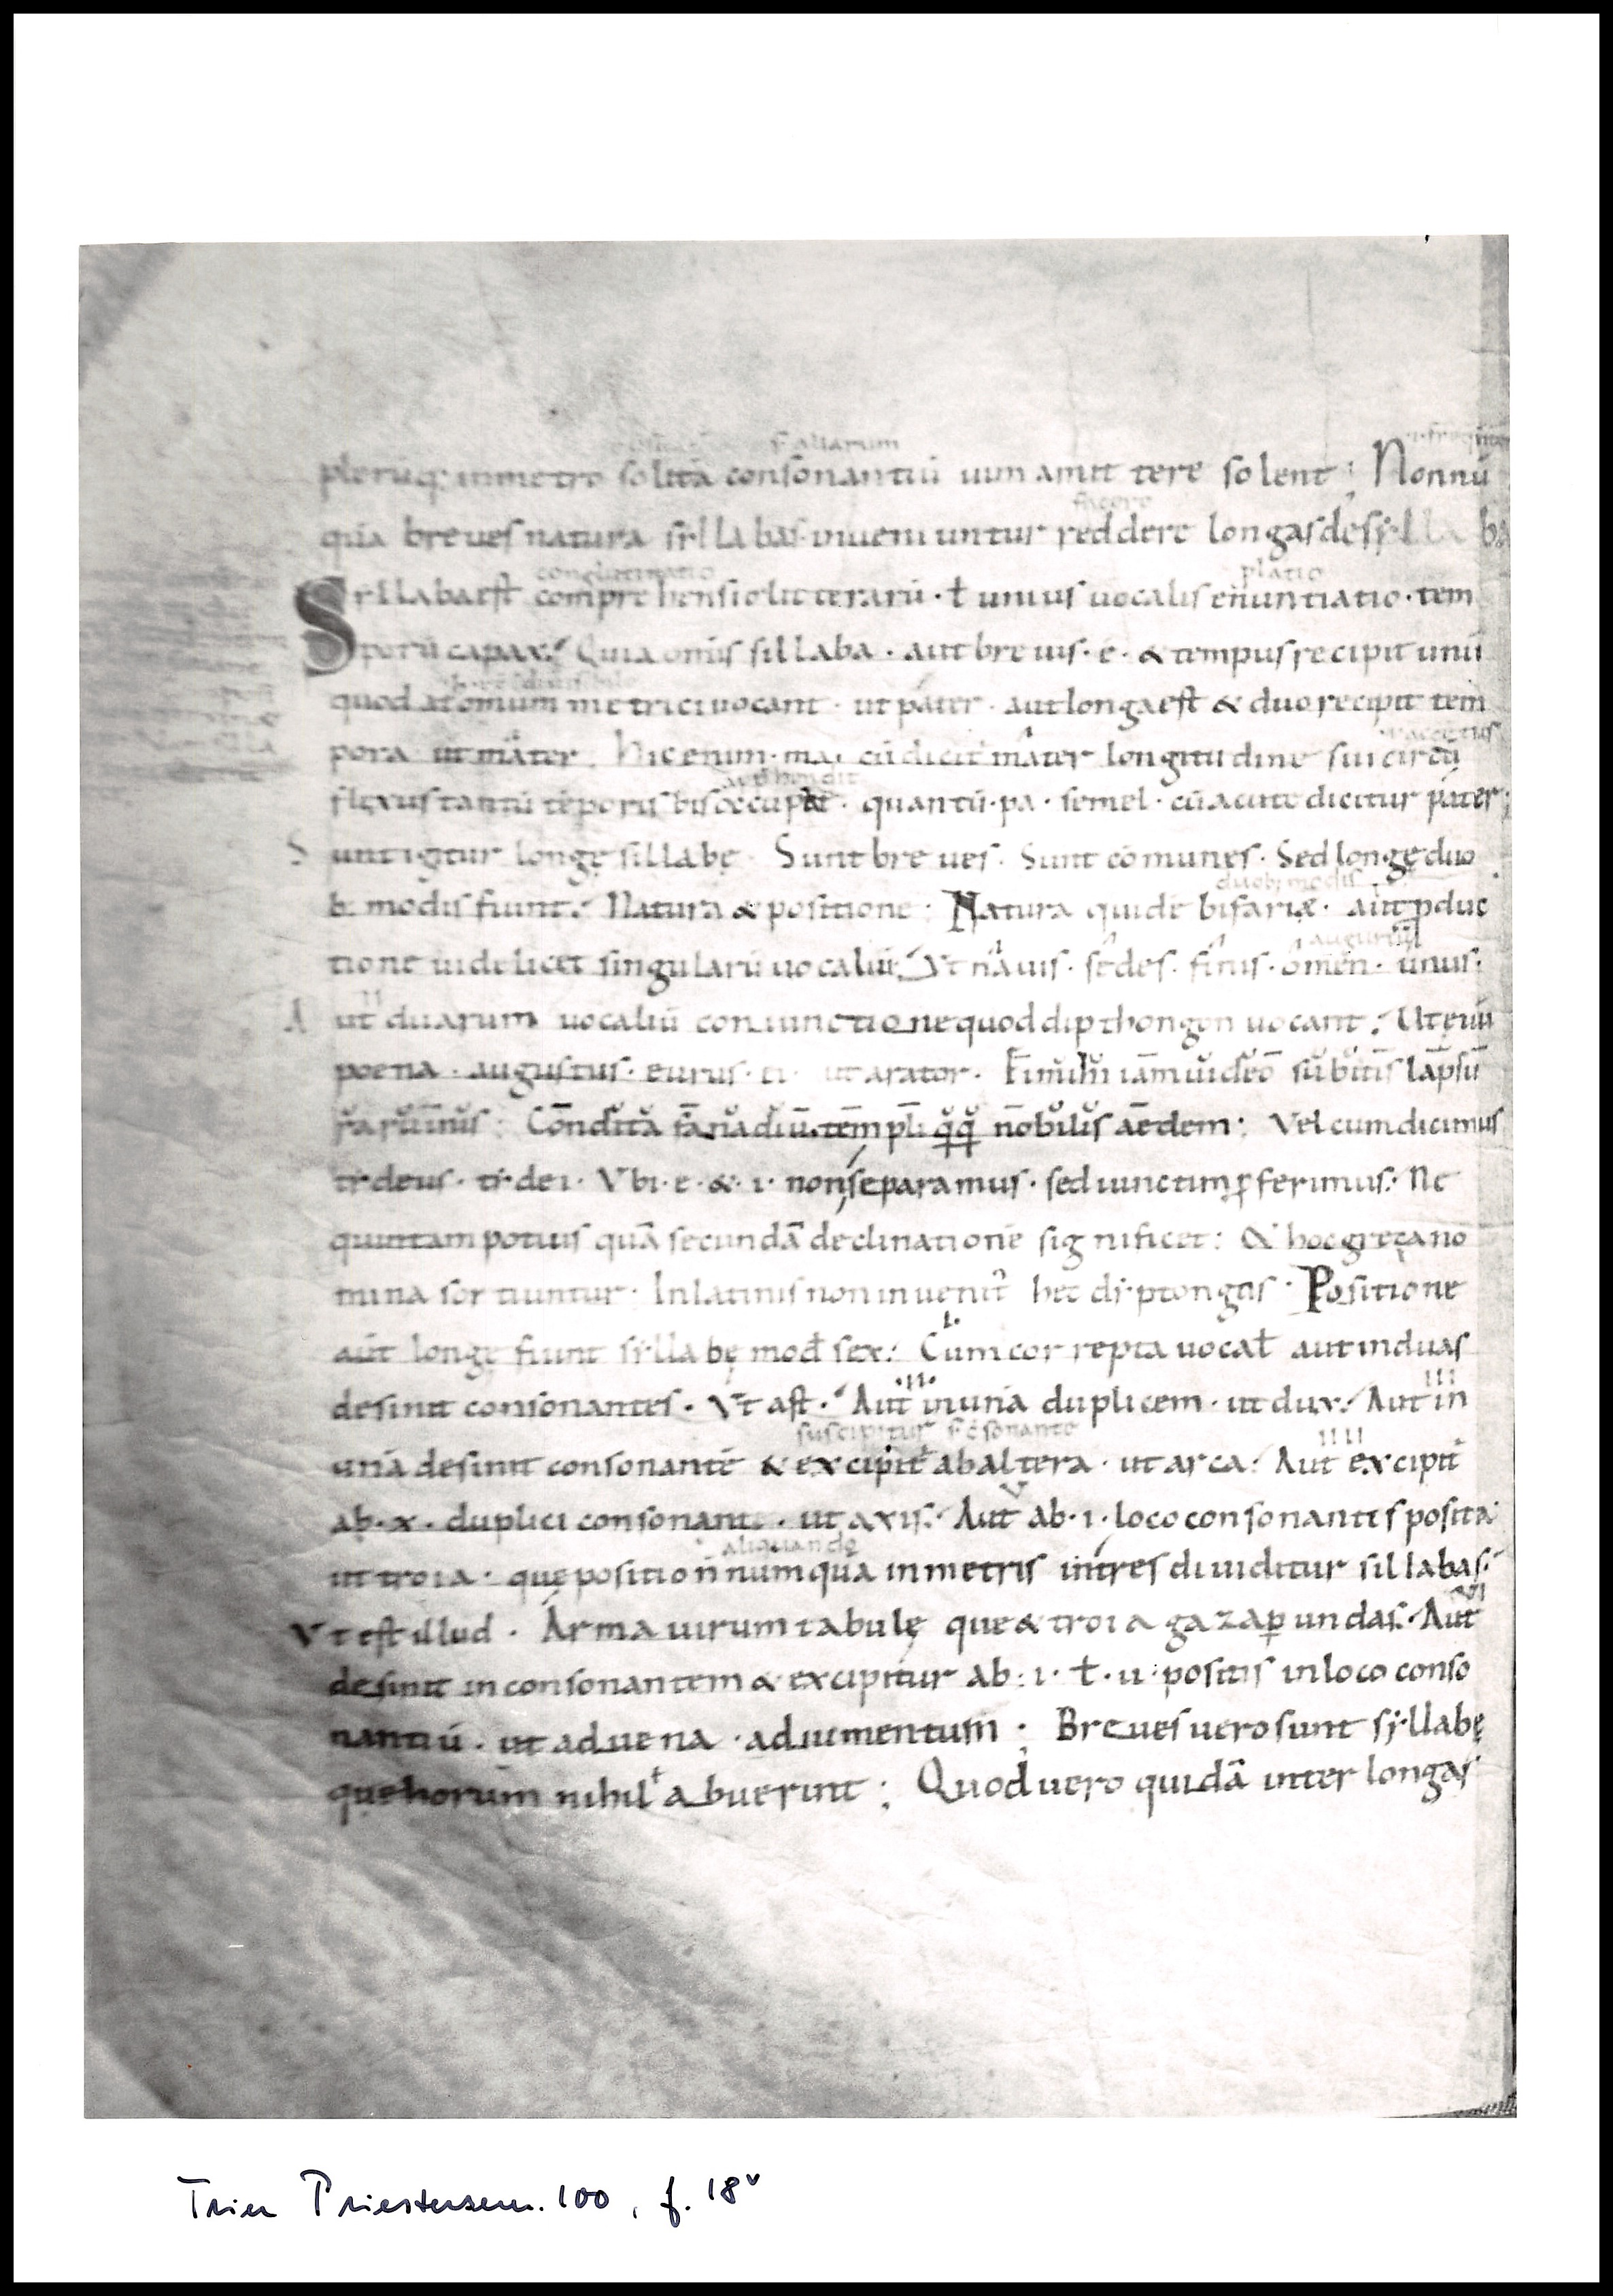 s. aliarum
pleruq; inmetro solitā consonantiū uim amittere solent; Nonnū
facere
qua breues natura sillabas inueniuntur reddere longas desilla ba
conglutinatio platio
Syllabaest comprehensio litterarū · ł unius uocalis enuntiatio · tem
porū capax; Quia omīs sillaba · aut breuis · ē · & tempus recipit unū
quod atomum metrici uocant · ut páter · aut longa est & duo recipit tem
accentus
pora ut mâter; Hic enim · ma, cū dicit mâter longitudine sui circū
flexus tantū tēporis bis occupat · quantū · pa · semel · cū acute dicitur páter;
Sunt igitur longę sillabę · Sunt breues · Sunt cōmunes · Sed longę duo
duob; modis
b; modis fiunt; Natura & positione; Natura quidē bifariæ · aut pduc
augurium
tione uidelicet singularū uocaliū; Vt nâuis · sêdes · fînis · ômen · unus ·
II
Aut duarum uocaliū coniunctione quod dipthongon uocant;
poena · augustus · eurus · ei · ut arator · iām uideō sŭbitīs lāpsū
rărŭinīs; Cōndită templi q̄q̄ nōbilis aedem; Vel cum dicimus
tydeus · tydei · Vbi · e · & · i · non separamus · sed iunctim pferimus; Ne
quintam potius quā secundā declinationē significet; & hoc greca no
mina sortiuntur · In latinis non inuenit̄ hec dyptongus · Positione
I
aūt longę fiunt syllabę mod̄ sex; Cum correpta uocał aut in duas
II III
desinit consonantes · Vt ast · Aut in unā duplicem · ut dux; Aut in
suscipitur s. cōsonante IIII
unā desinit consonantē & excipit̄ ab altera · ut arca; Aut excipit̄
V
ab · x · duplici consonante · ut axis; Aut ab · i · loco consonantis posita
aliquando
ut troia · quę positio ñ numqua in metris in tres diuiditur sillabas;
VI
Vt est illud · Arma uirum tabulę que & troia gaza p undas; Aut
desinit in consonantem & excipitur ab · i · ł · u · positis in loco conso
nantiū · ut aduena · adiumentum · Breues uero sunt syllabę
quę horum nihil abuerint; Quod uero quidā inter longas
Trier Priestersem. 100, f. 18v